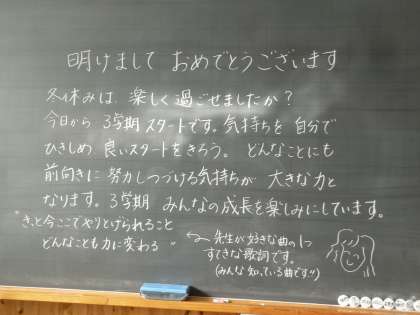 明けまして おめでとうございます
冬休みは、楽しく過ごせましたか？
今日から 3学期 スタートです。気持ちを 自分で
ひきしめ 良いスタートをきろう。 どんなことにも
前向きに 努力しつづける気持ちが 大きな力と
なります。3学期 みんなの成長を楽しみにしています。
"きっと今ここでやりとげられること
どんなことも力に変わる"
← 先生が好きな曲の1つ
すてきな歌詞です。
(みんな 知っている曲です!!)